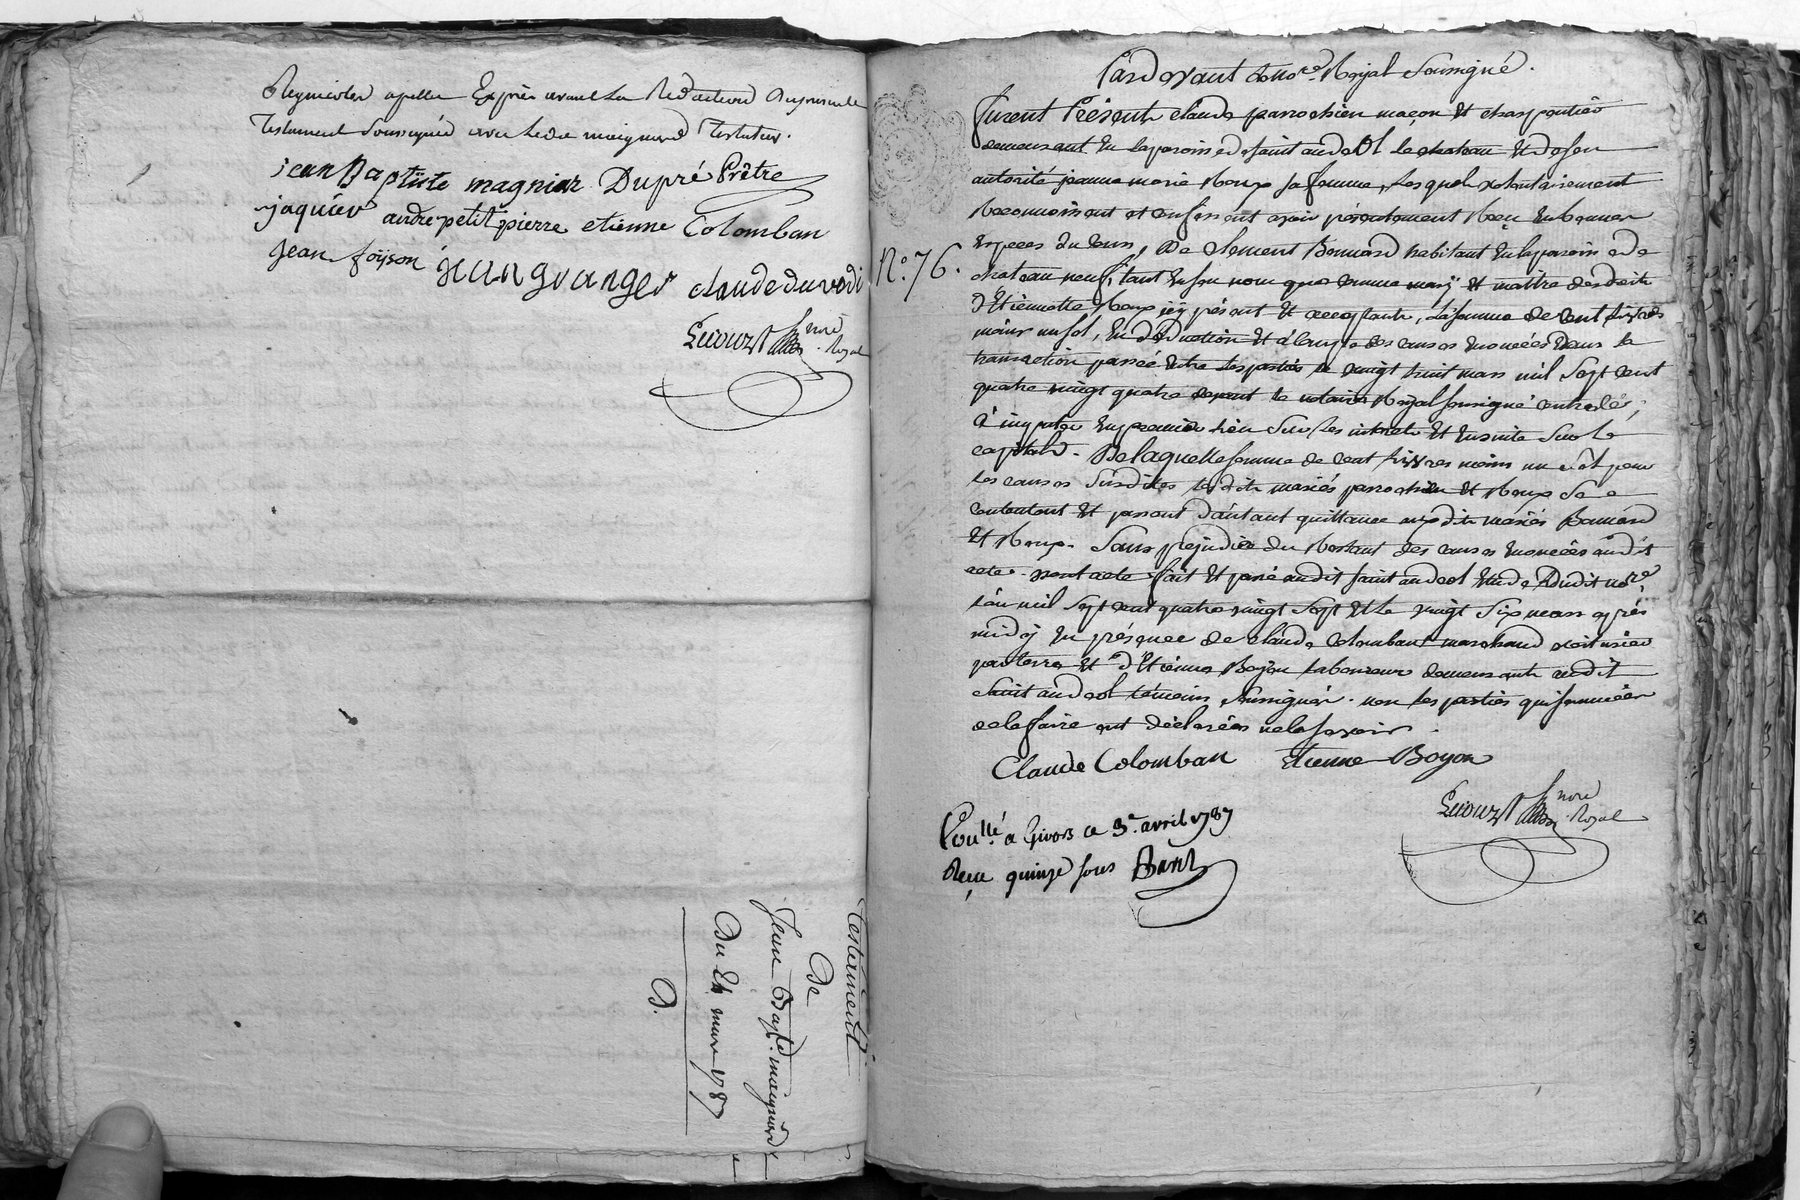 Regnicoles appellés Exprès avant la Redaction du present
Testament Soussignés avec ledit maignard Testateur.
jean Baptiste magniar Dupré Prêtre
jaquier andre petit pierre etienne Colomban
jean foijson jean granger claude duverdi
nore Royal
Testament
De
Jean Bapte. maignard
Du 24 mars 1787
D.
Pardevant Le Nore. Royal Soussigné.
N°. 76.
furent Présents claude parrochien maçon Et charpentier
demeurant En la paroisse de saint andéol le chateau Et de son
autorité jeanne marie Roux sa femme, Lesquels volontairement
Reconnoissent et confessent avoir présentement Reçu En bonnes
Especes du cours, De Clement Bonnard habitant En la paroisse de
chateau neuf, tant En son nom que comme mary Et maître des droits
d'Etiennette Roux icy présent Et acceptante, La somme de cent livres
moins un sol, En déduction Et à compte des causes Enoncées dans la
transaction passée Entre les parties le vingt huit mars mil Sept cent
quatre vingt quatre devant le notaire Royal soussigné controlés,
à imputer En premier lieu Sur les interets Et Ensuite Sur le
capital. De laquelle somme de cent livres moins un sol pour
les causes Susdites lesdits mariés parrochien Et Roux Se
contentent Et passent d'autant quittance auxdits mariés Bonnard
Et Roux. Sans préjudice du Restant des causes Enoncées audit
acte. dont acte fait Et passé audit saint andéol Etude dudit nore
L'an mil Sept cent quatre vingt Sept Et Le vingt Six mars après
midy En présence de claude Colomban marchand voiturier
par terre Et d'Etienne Boyon laboureur demeurants audit
Saint andéol témoins Soussignés. non les parties qui sommées
de le faire ont déclarées ne le Savoir.
Claude Colomban Etienne Boyon
nore Royal
Conllé. a Givors ce 3e. avril 1787
Reçu quinze sous